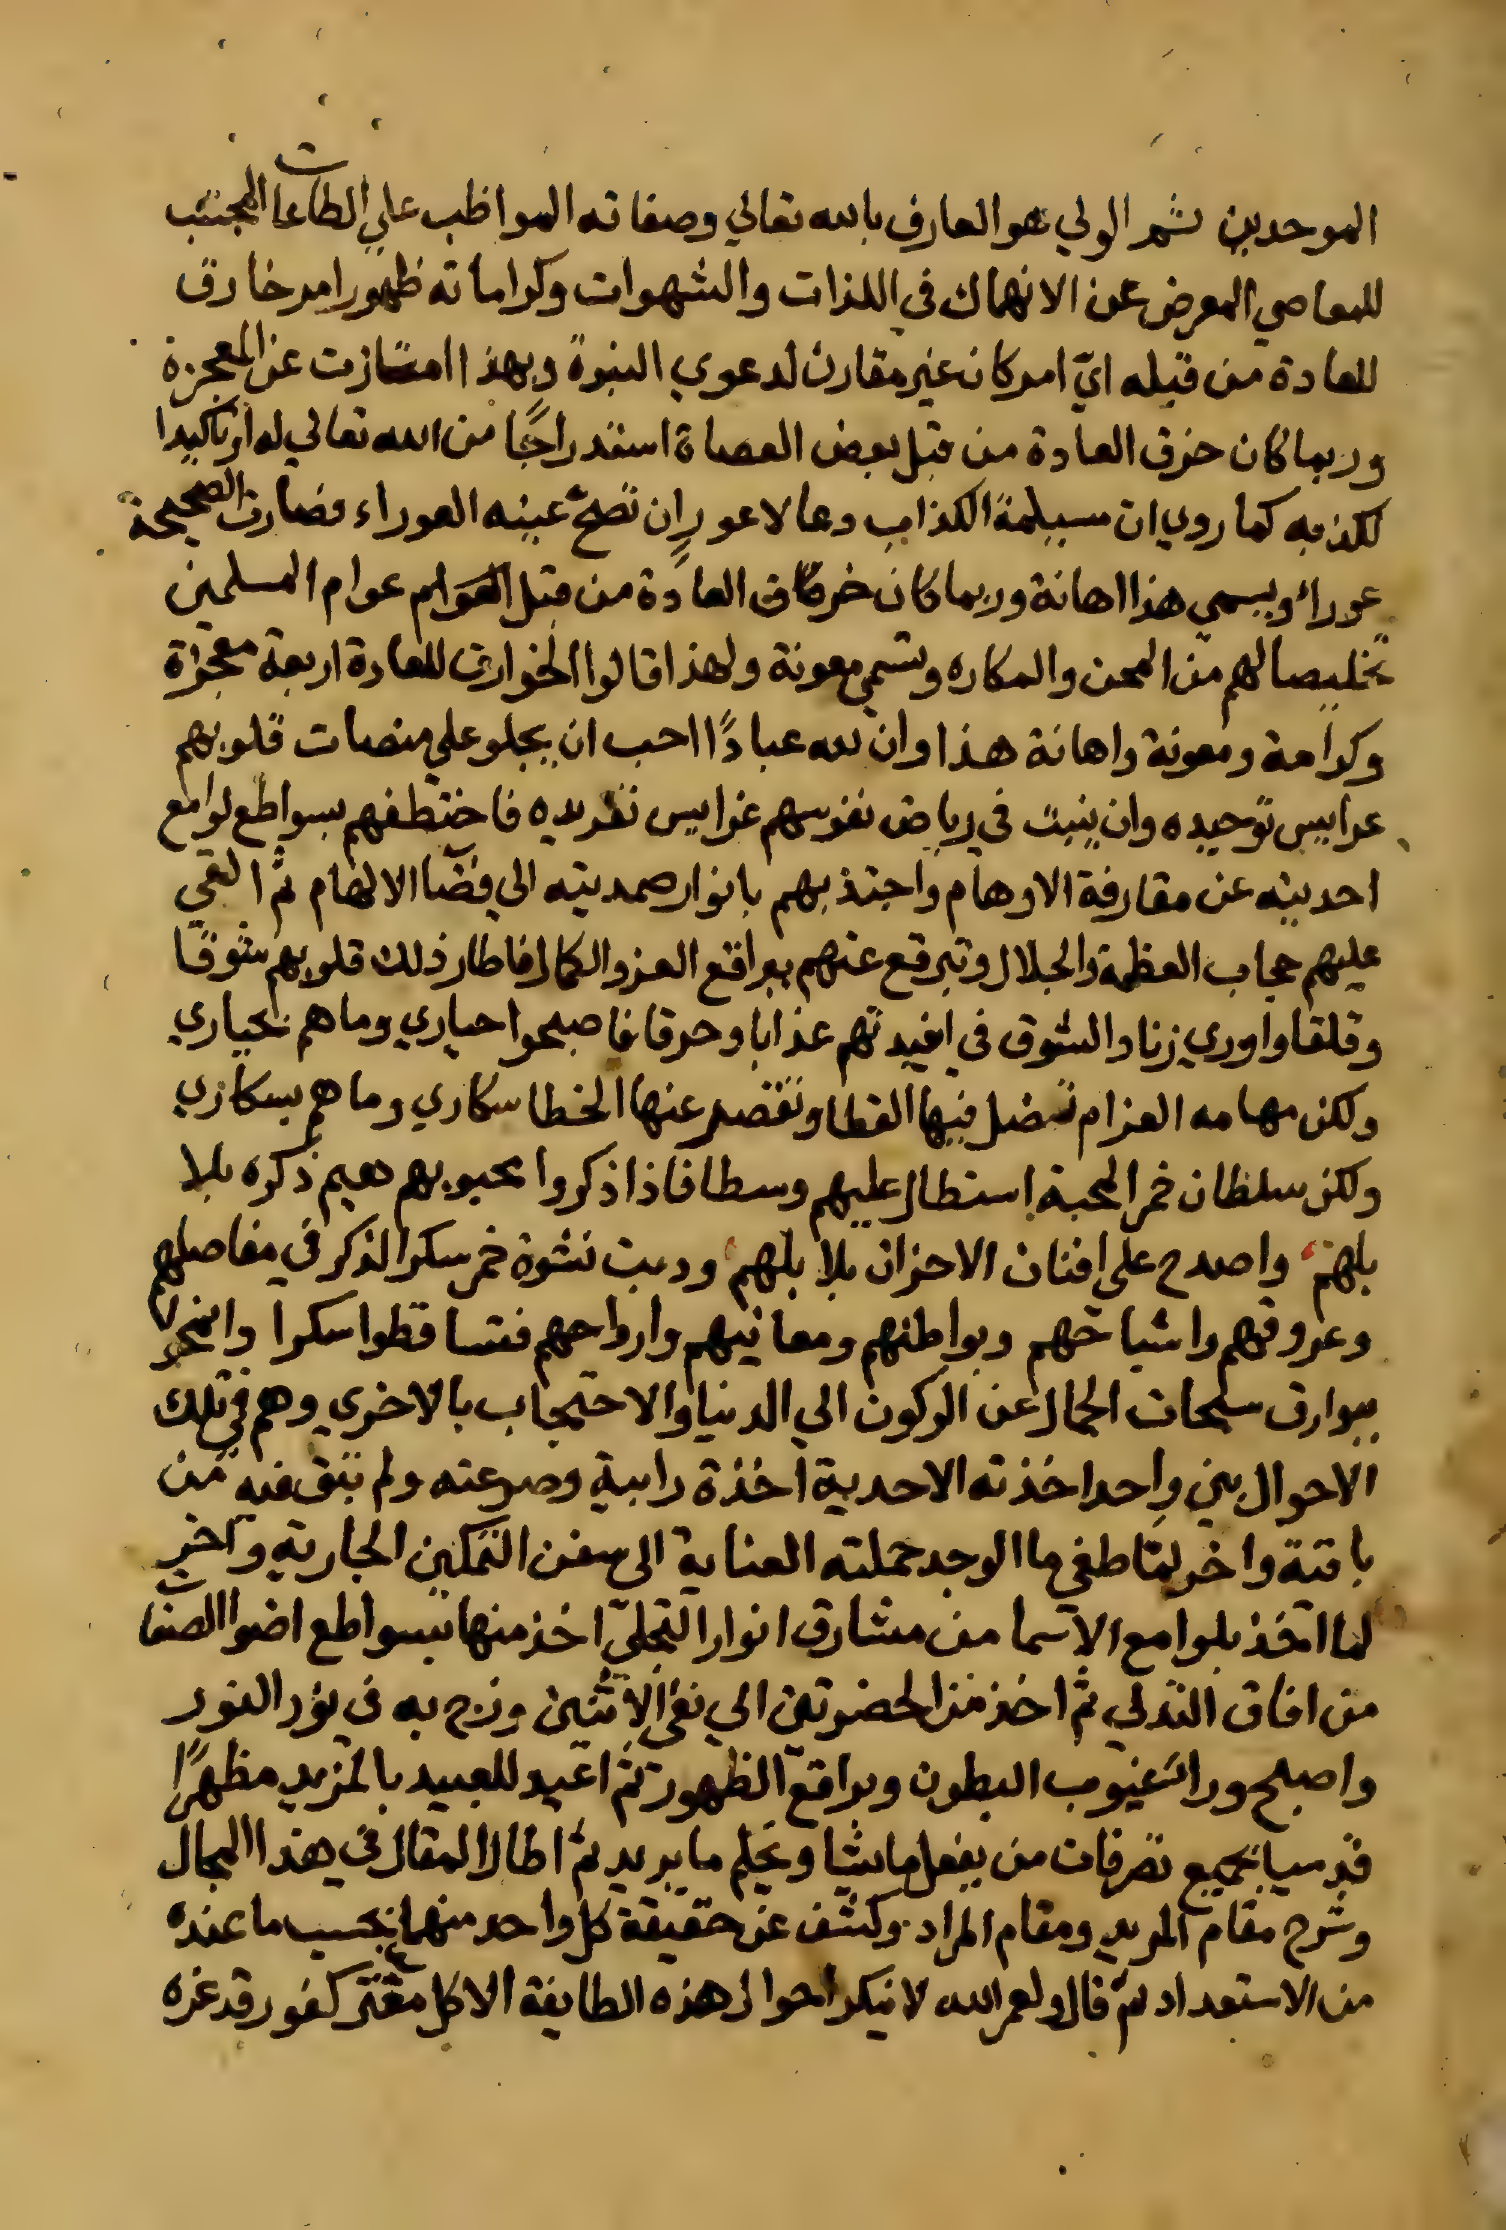 الموحدين ثم الولي هو العارف بالله تعالي وصفاته المواظب علي الطاعات المجتنب
للمعاصي المعرض عن الانهماك في اللذات والشهوات وكراماته ظهور امر خارق
للعادة من قبله اي امر كان غير مقارن لدعوي النبوة وبهذا امتازت عن المعجزة
وربما كان خرق العادة من قبل بعض العصاة استدراجًا من الله تعالي له او تاكيدا
لكذبه كما روي ان مسيلمة الكذاب دعا لاعور ان تصح عينه العوراء فصارت الصحيحة
عوراء ويسمي هذا اهانة وربما كان خرق العادة من قبل عوام المسلمين
تخليصا لهم من المحن والمكاره وتسمي معونة ولهذا قالوا الخوارق للعادة اربعة معجزة
وكرامة ومعونة واهانة هذا وان لله عبادًا احب ان يجلو علي منصات قلوبهم
عرايس توحيده وان ينبت في رياض نفوسهم غرايس تفريده فاختطفهم بسواطع لوامع
احديته عن مقارفة الاوهام واجتذبهم بانوار صمديته الي فضا الالهام ثم القي
عليهم حجاب العظمة والجلال وتبرقع عنهم ببراقع العز والكمال فاطار ذلك قلوبهم شوقًا
وقلقا واوري زناد الشوق في افيدتهم عذابا وحرقا فاصبحوا حياري وما هم بحياري
ولكن مهامه الغرام تضل فيها القطا وتقصر عنها الخطا سكاري وما هم بسكاري
ولكن سلطان خمر المحبة استطال عليهم وسطا فاذا ذكروا محبوبهم هيم ذكره بلا
بلهم واصدح علي افنان الاحزان بلا بلهم ودبت نشوة خمر سكر الذكر في مفاصلهم
وعروقهم واشباحهم وبواطنهم ومعانيهم وارواحهم فتساقطوا سكرا
ببوارق سبحات الجمال عن الركون الي الدنيا والاحتجاب بالاخري وهم في تلك
الاحوال بين واحد اخذته الاحدية اخذة رابية وصرعته ولم تبق فيه من
باقية واخر لما طغي ما الوجد حملته العناية الي سفن التمكين الجارية واخر
لما اتخذ بلوامع الاسما من مشارق انوار التجلي اخذ منها بسواطع اضوا الصفات
من افاق التدلي ثم اخذ من الحضرتين الي نفي الاثنين وزج به في نور النور
واصبح ورا غيوب البطون وبراقع الظهور ثم اعيد للعبيد بالمزيد مظهرًا
قدسيا بجميع تصرفات من يفعل ما يشا ويحكم ما يريد ثم اطال المقال في هذا المجال
وشرح مقام المريد ومقام المراد وكشف عن حقيقة كل واحد منهما بحسب ما عنده
من الاستعداد ثم قال ولعمر الله لا ينكر احوال هذه الطايفة الا كل مغتر كفور قد غره